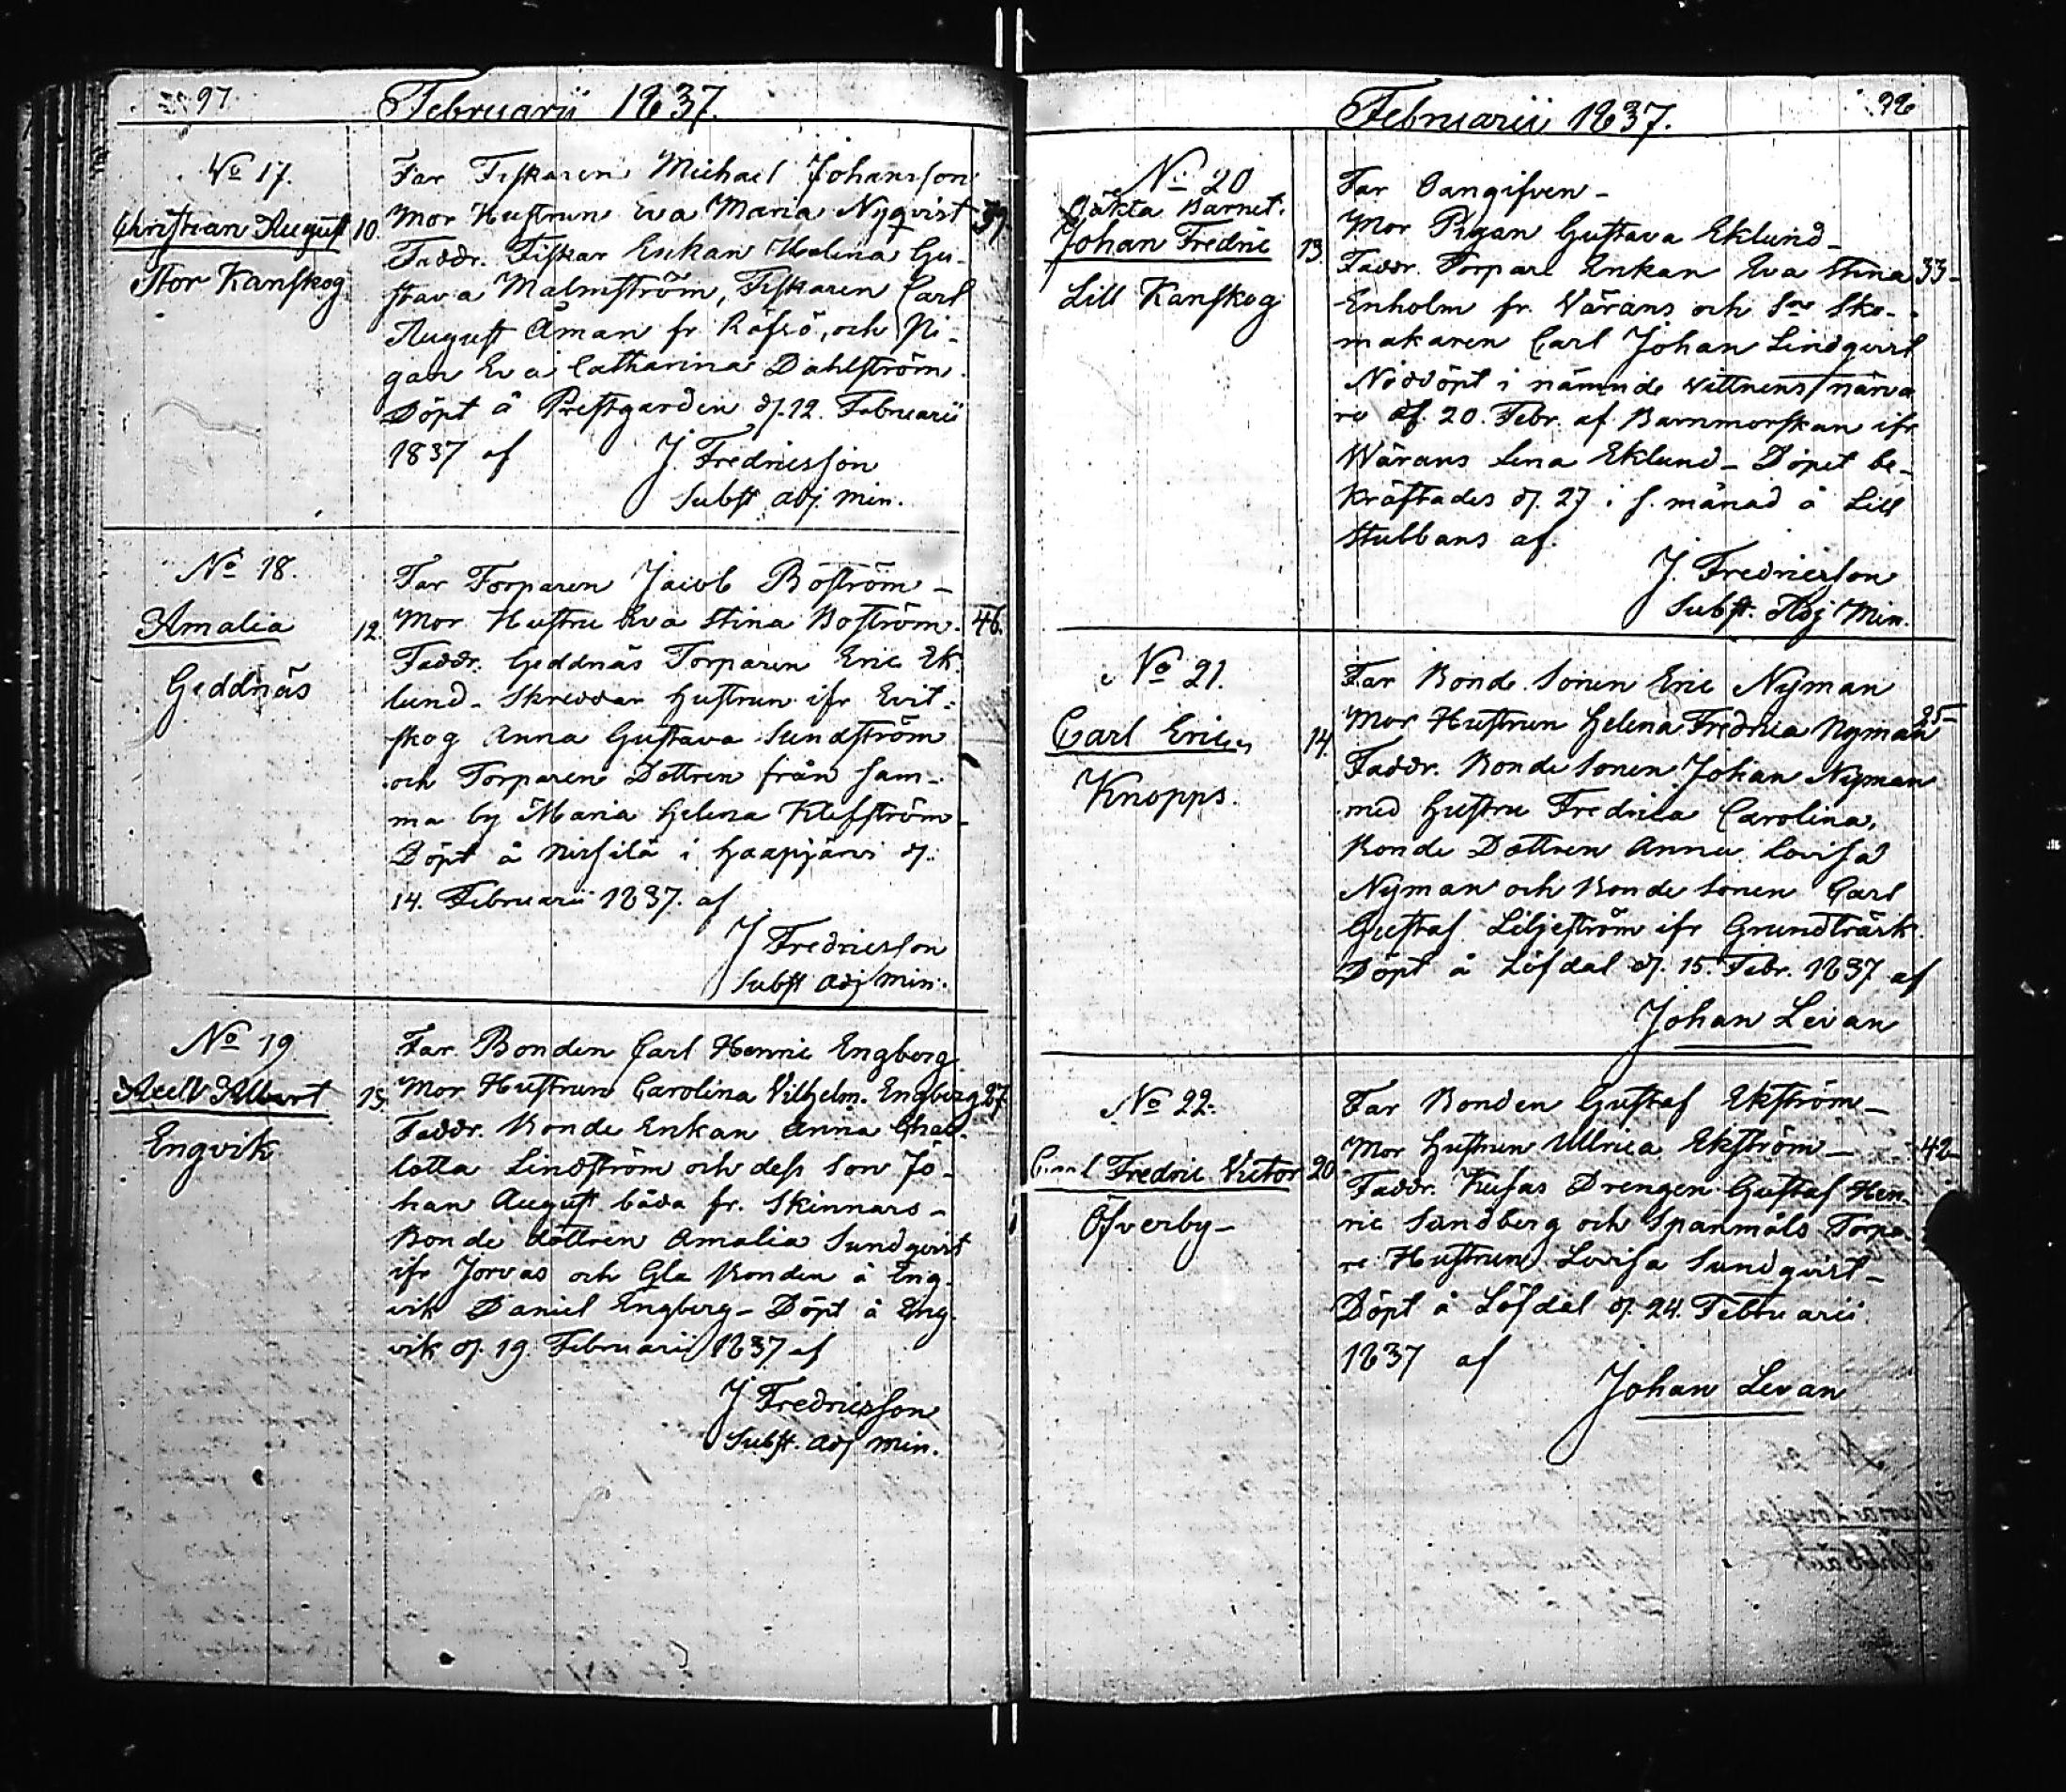 97
Februarii 1837.
No 17.
Christian August
Stor Kanskog
10.
Far Fiskaren Michael Johansson
Mor Hustrun Eva Maria Nyqvist
39.
Faddr. Fiskar Enkan Helena Gu-
stava Malmström, Fiskaren Carl
August Åman fr. Räfsö, och Pi-
gan Eva Catharina Dahlström.
Döpt å Prestgarden d. 12. Februarii
1837 af J. Fredricsson
Subst adj. Min.
No 18.
Amalia
Geddnäs
12.
Far Torparen Jacob Boström –
Mor Hustru Eva Stina Boström.
46.
Faddr. Geddnäs Torparen Eric Ek-
lund – Skreddar Hustrun ifr Evit-
skog Anna Gustava Sundström
och Torparen Dottren från sam-
ma by Maria Helena Klefström –
Döpt å i Haapjärvi d.
14. Februarii 1837. af
J Fredricsson
Subst Adj Min.
No 19
Axell Albert
Engvik
15.
Far Bonden Carl Henric Engberg
Mor Hustrun Carolina Vilhelm. Engberg
27
Faddr. Bonde Enkan Anna Char-
lotta Lindström och dess Son Jo-
han August båda fr. Skinnars –
Bonde dottren Amalia Sundqvist
ifr Jorvas och Gla Bonden å Eng-
vik Daniel Engberg – Döpt å Eng-
vik d. 19 Februarii 1837 af
J Fredricsson
Subst. Adj Min.
98
Februarii 1837.
No 20
Oäkta Barnet.
Johan Fredric
Lill Kanskog
13.
Far Oangifven –
Mor Pigan Gustava Eklund –
Faddr. Torpare Enkan Eva Stina
33–
Enholm fr. Värans och Sne Sko-
makaren Carl Johan Lindqvist
Nöddöpt i nämnde vittnens närva
ro d. 20. Febr. af Barnmorskan ifr
Wärans Lena Eklund – Döpet be-
kräftades d. 27 i s. månad å Lill
Stubbans af.
J. Fredricsson
Subst. Adj Min.
No 21.
Carl Eric
Knopps.
14.
Far Bonde Sonen Eric Nyman
Mor Hustrun Helena Fredrica Nyman
25–
Faddr. Bonde Sonen Johan Nyman
med Hustru Fredrica Carolina,
Bonde Dottren Anna Lovisa
Nyman och Bonde Sonen Carl
Gustaf Liljeström ifr Grundträsk.
Döpt å Löfdal d. 15. Febr. 1837 af
Johan Levan
No 22.
Fredric Victor
Öfverby –
20
Far Bonden Gustaf Ekström –
Mor Hustrun Ullrica Ekström –
42–
Faddr. Kusas Drengen Gustaf Hen-
ric Sandberg och Spanmåls Torpa-
re Hustrun Lovisa Sundqvist –
Döpt å Löfdal d. 24. Februarii
1837 af
Johan Levan